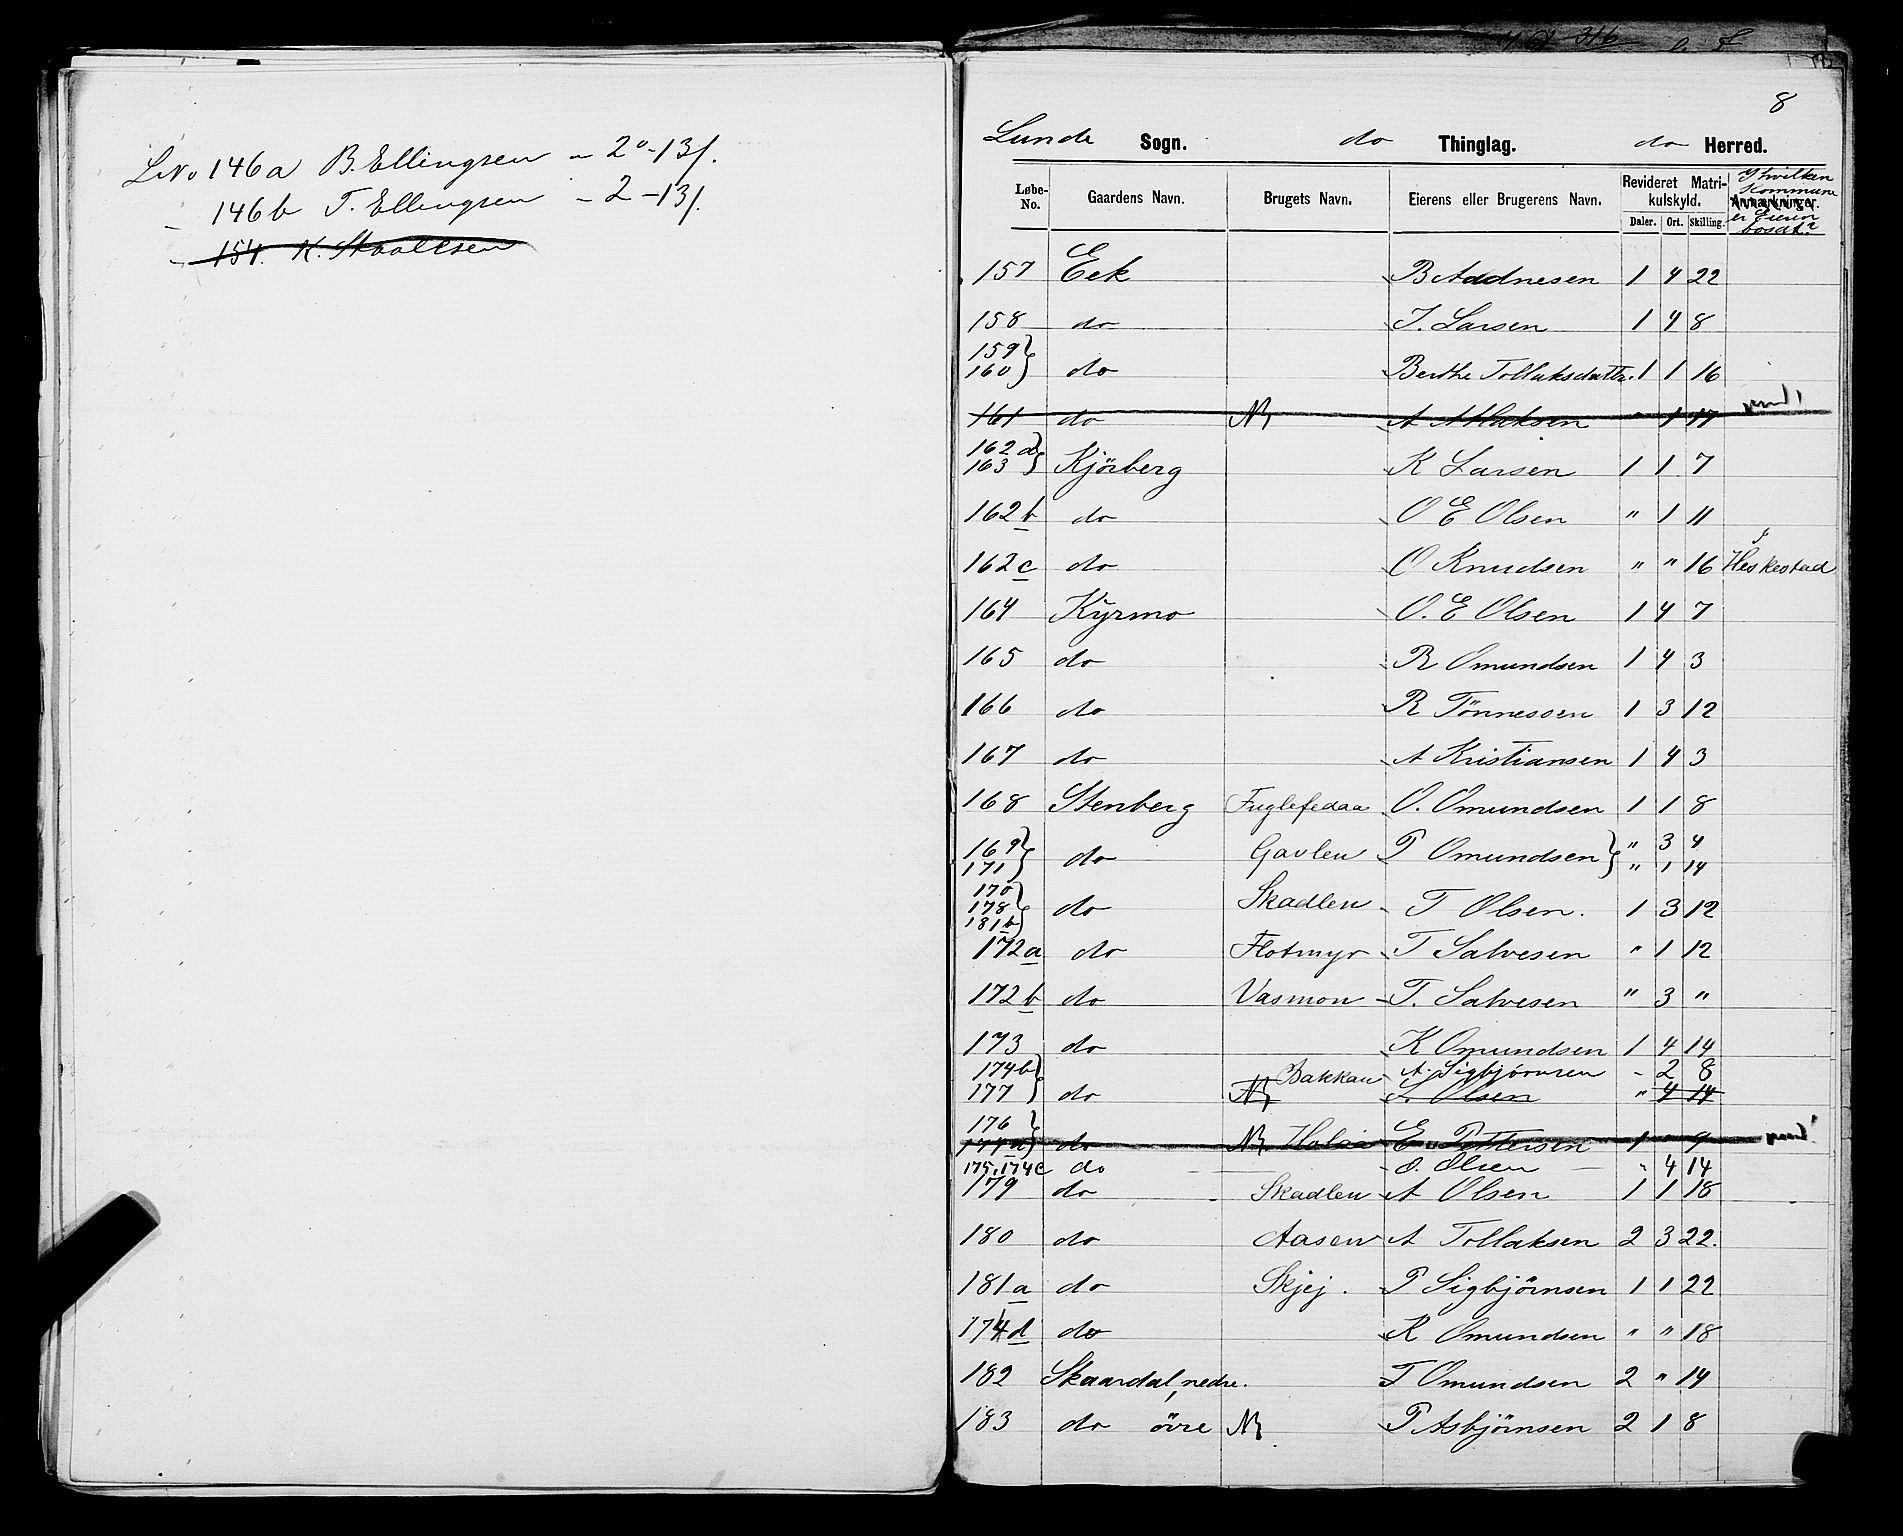 LNo 146a B. Ellingsen - 2 - 0 - 13/.
146b T. Ellingsen - 2 - 13/.
154. K. Staalesen
8
Lunde Sogn. do Thinglag. do Herred.
Løbe-No. Gaardens Navn. Brugets Navn. Eierens eller Brugerens Navn. Revideret Matrikulskyld. Anmærkninger. I hvilken Kommune er Eieren bosat?
Daler. Ort. Skilling.
157 Eek B Aadnesen 1 4 22
158 do T. Larsen 1 4 8
159 160 } do Berthe Tollaksdatter 1 1 16
161 do N A Atlaksen " 1 17
162a 163 } Kjørberg K Larsen 1 1 7
162b do O E Olsen " 1 11
162c do O Knudsen " " 16 i Heskestad
164 Kyrmo O. E Olsen 1 4 7
165 do R Omundsen 1 4 3
166 do R Tönnessen 1 3 12
167 do A Kristiansen 1 4 3
168 Stenberg Fuglefedaa O. Omundsen 1 1 8
169 171 } do Gavlen P Omundsen } " 3 4 " 1 14
170 178 181b } do Skadlen T Olsen. 1 3 12
172a do Flotmyr T Salvesen " 1 12
172b do Vasmon T. Salvesen " 3 "
173 do K Omundsen 1 4 14
174b Bakkan A. Sigbjörnsen - 2 8
177 } do N Olsen " 4 14
176 174a } do N E Pettersen 1 " 9
175, 174c do O. Olsen " 4 14
179 do Skadlen A Olsen 1 1 18
180 do Aasen A Tollaksen 2 3 22.
181a do Skjej. P Sigbjörnsen 1 1 22
174d do R Omundsen " " 18
182 Skaardal, nedre. T Omundsen 2 " 14
183 do övre N P Asbjörnsen 2 1 8